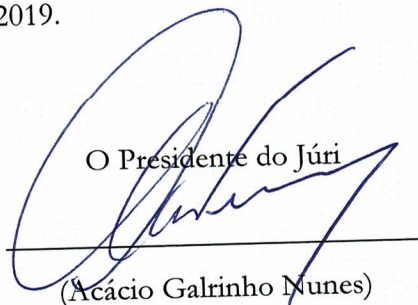 2019.
O Presidente do Júri
(Acácio Galrinho Nunes)